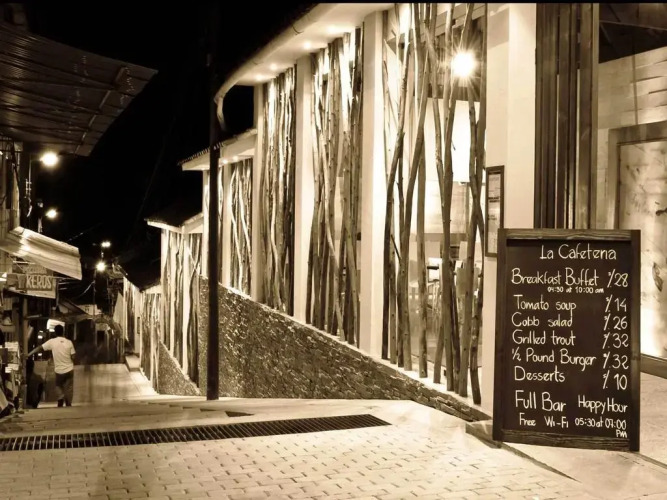 La Cafeteria
Breakfast Buffet ⁵/28
04:30 at 10:00 am
Tomato soup ⁵/14
Cobb salad ⁵/26
Grilled trout ⁵/32
½ Pound Burger ⁵/32
Desserts ⁵/10
Full Bar Happy Hour
Free Wi-Fi 05:30 at 07:00
Pm